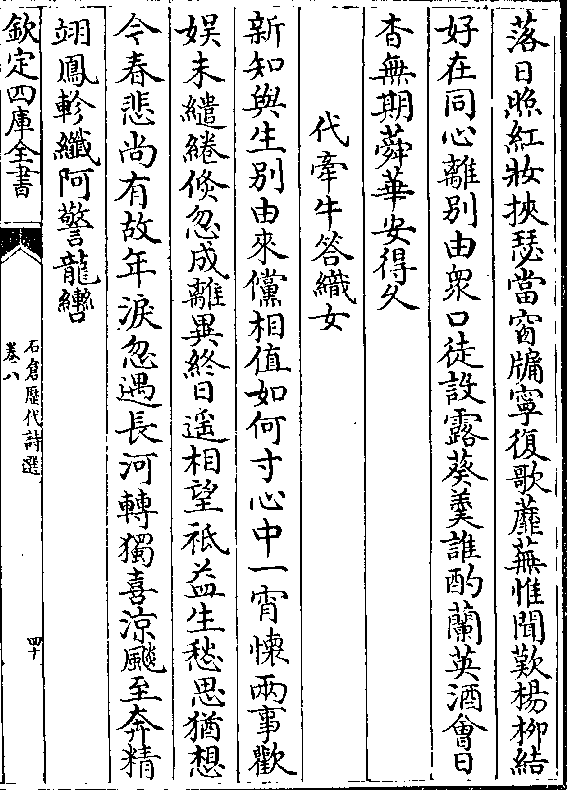 落日照紅妝挾瑟當窗牖寧復歌蘼蕪惟聞歎楊柳結
好在同心離別由衆口徒設露葵羹誰酌蘭英酒會日
杳無期蕣華安得久
代牽牛答織女
新知與生別由來儻相值如何寸心中一宵懷兩事歡
娱未繾綣倐忽成離異終日遥相望祇益生愁思猶想
今春悲尚有故年淚忽遇長河轉獨喜涼飈至奔精
翊鳳軫纖阿警龍轡
欽定四庫全書
石倉歷代詩選
卷八
四十